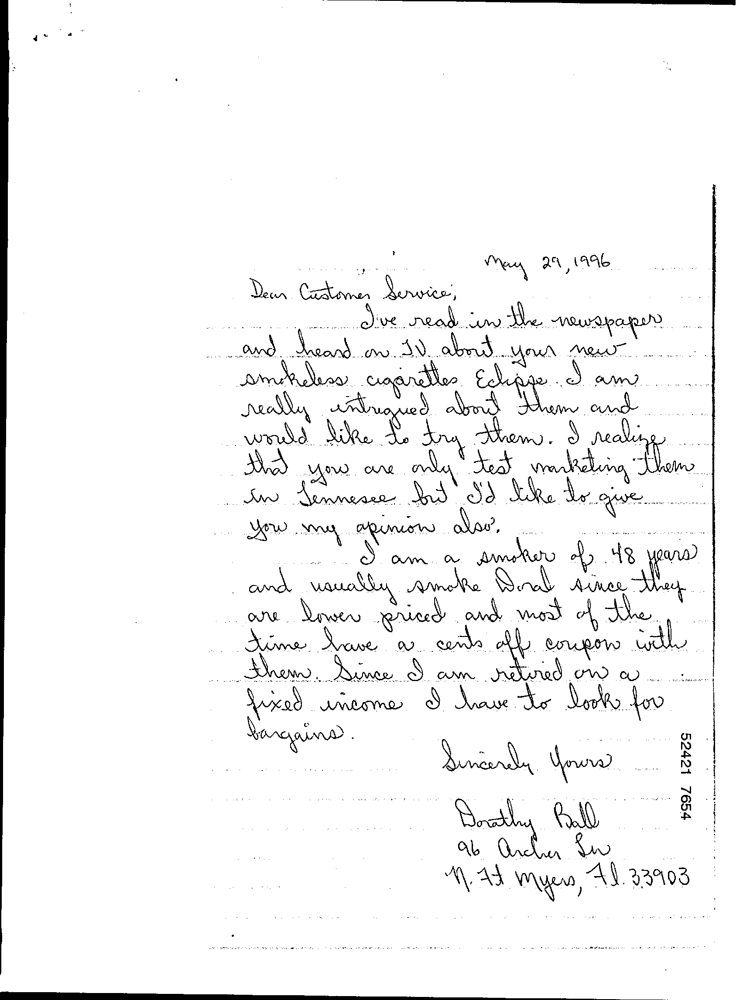 May 29, 1996
Dear Customer Service,
I've read in the newspaper
and heard on TV about your new
smokeless cigarettes Eclipse. I am
really intrigued about them and
would like to try them. I realize
that you are only test marketing them
in Tennesee but I'd like to give
you my opinion also.
I am a smoker of 48 years
and usually smoke Doral since they
are lower priced and most of the
time have a cents off coupon with
them. Since I am retired on a
fixed income I have to look for
bargains.
Sincerely Yours
Dorothy Ball
96 Archer Ln
N. Ft Myers, Fl. 33903
52421 7654